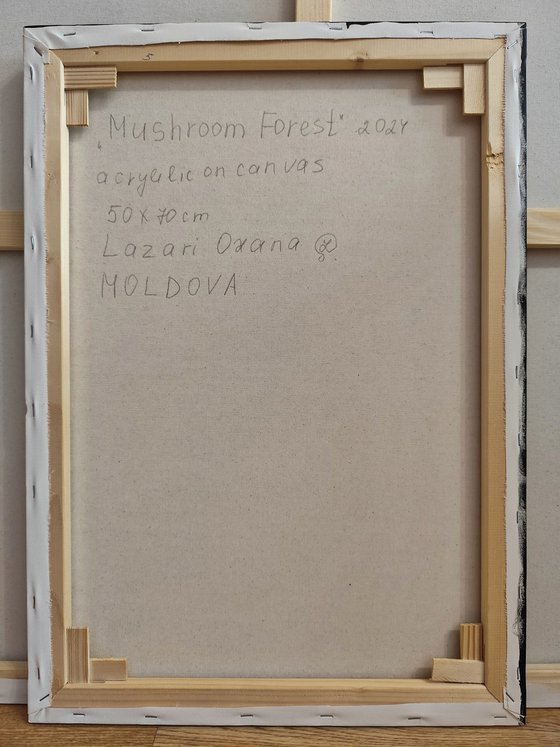 "Mushroom Forest" 2024
acrylic on canvas
50 x 70 cm
Lazari Oxana
MOLDOVA
5